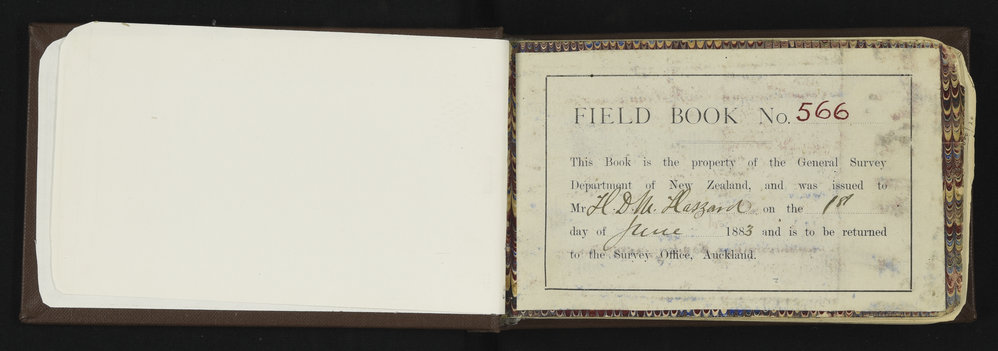 FIELD BOOK No. 566
This Book is the property of the General Survey
Department of New Zealand, and was issued to
Mr H. D. M. Haszard on the 1st
day of June 1883 and is to be returned
to the Survey Office, Auckland.